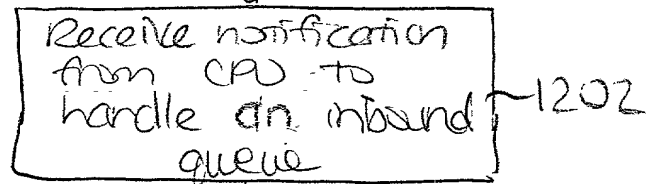 Receive notification
from CPU to
handle an inbound
queue
1202